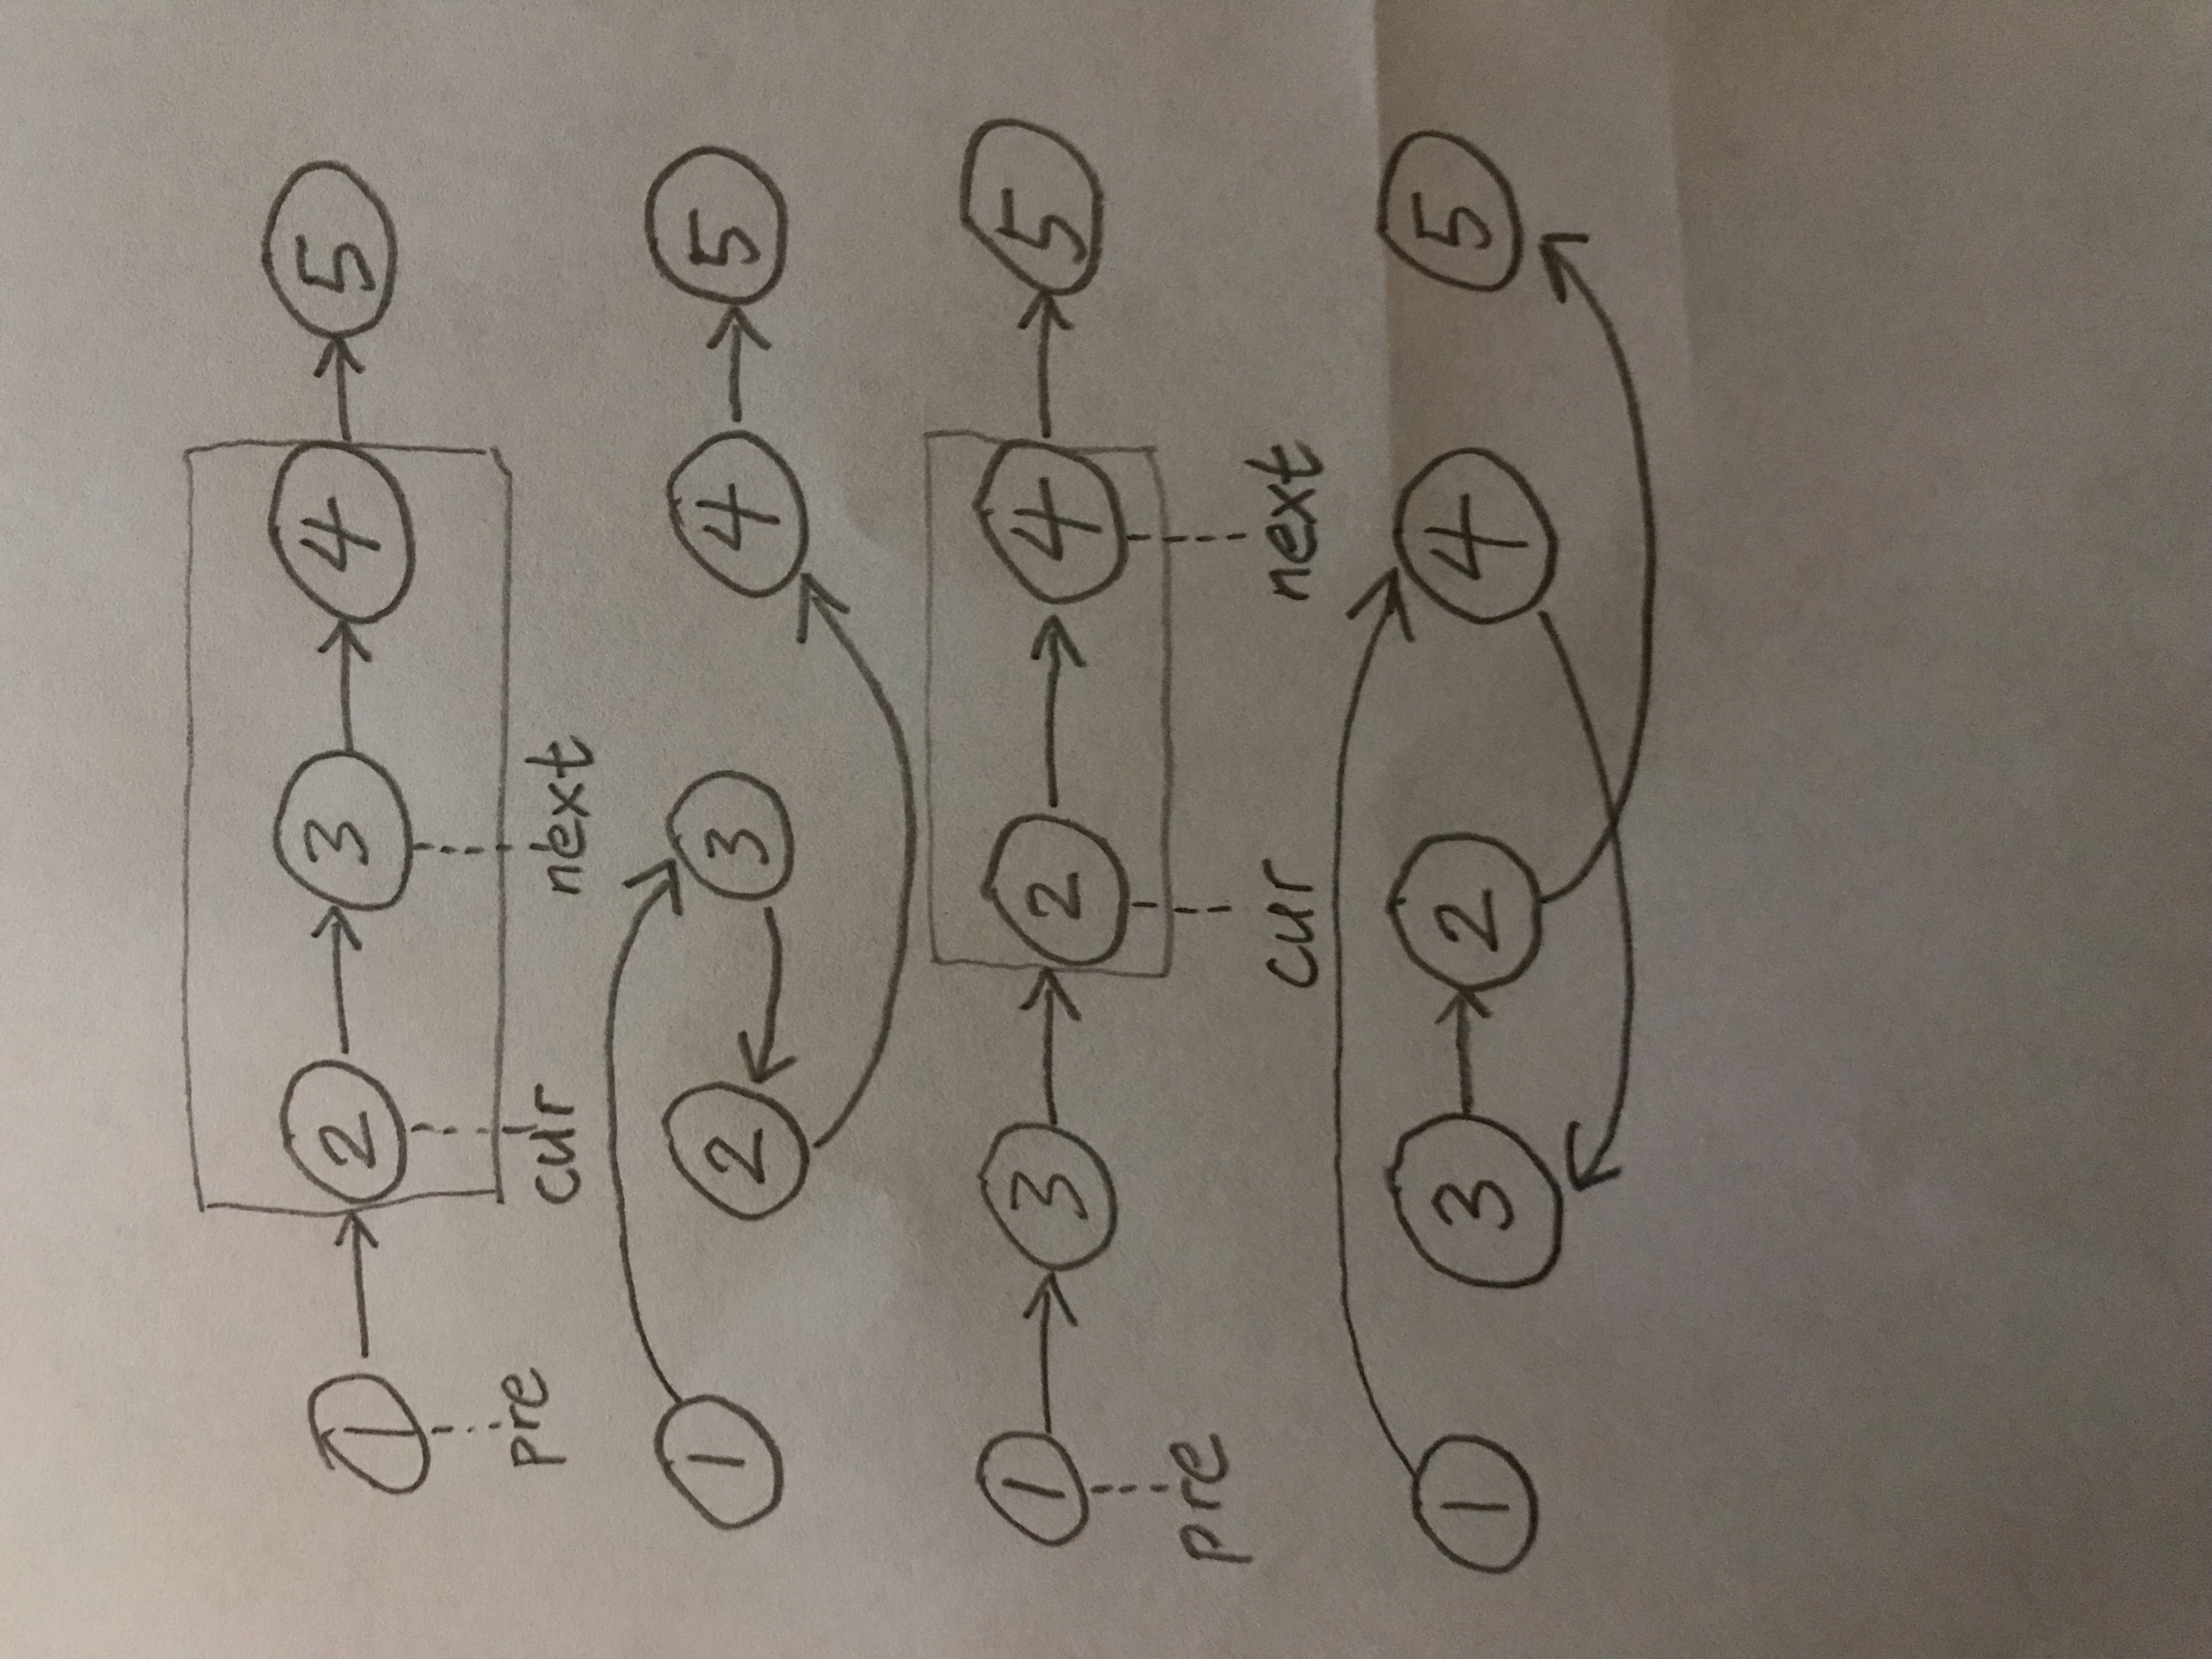 1 2 3 4 5
pre cur next
1 2 3 4 5
1 3 2 4 5
pre cur next
1 3 2 4 5